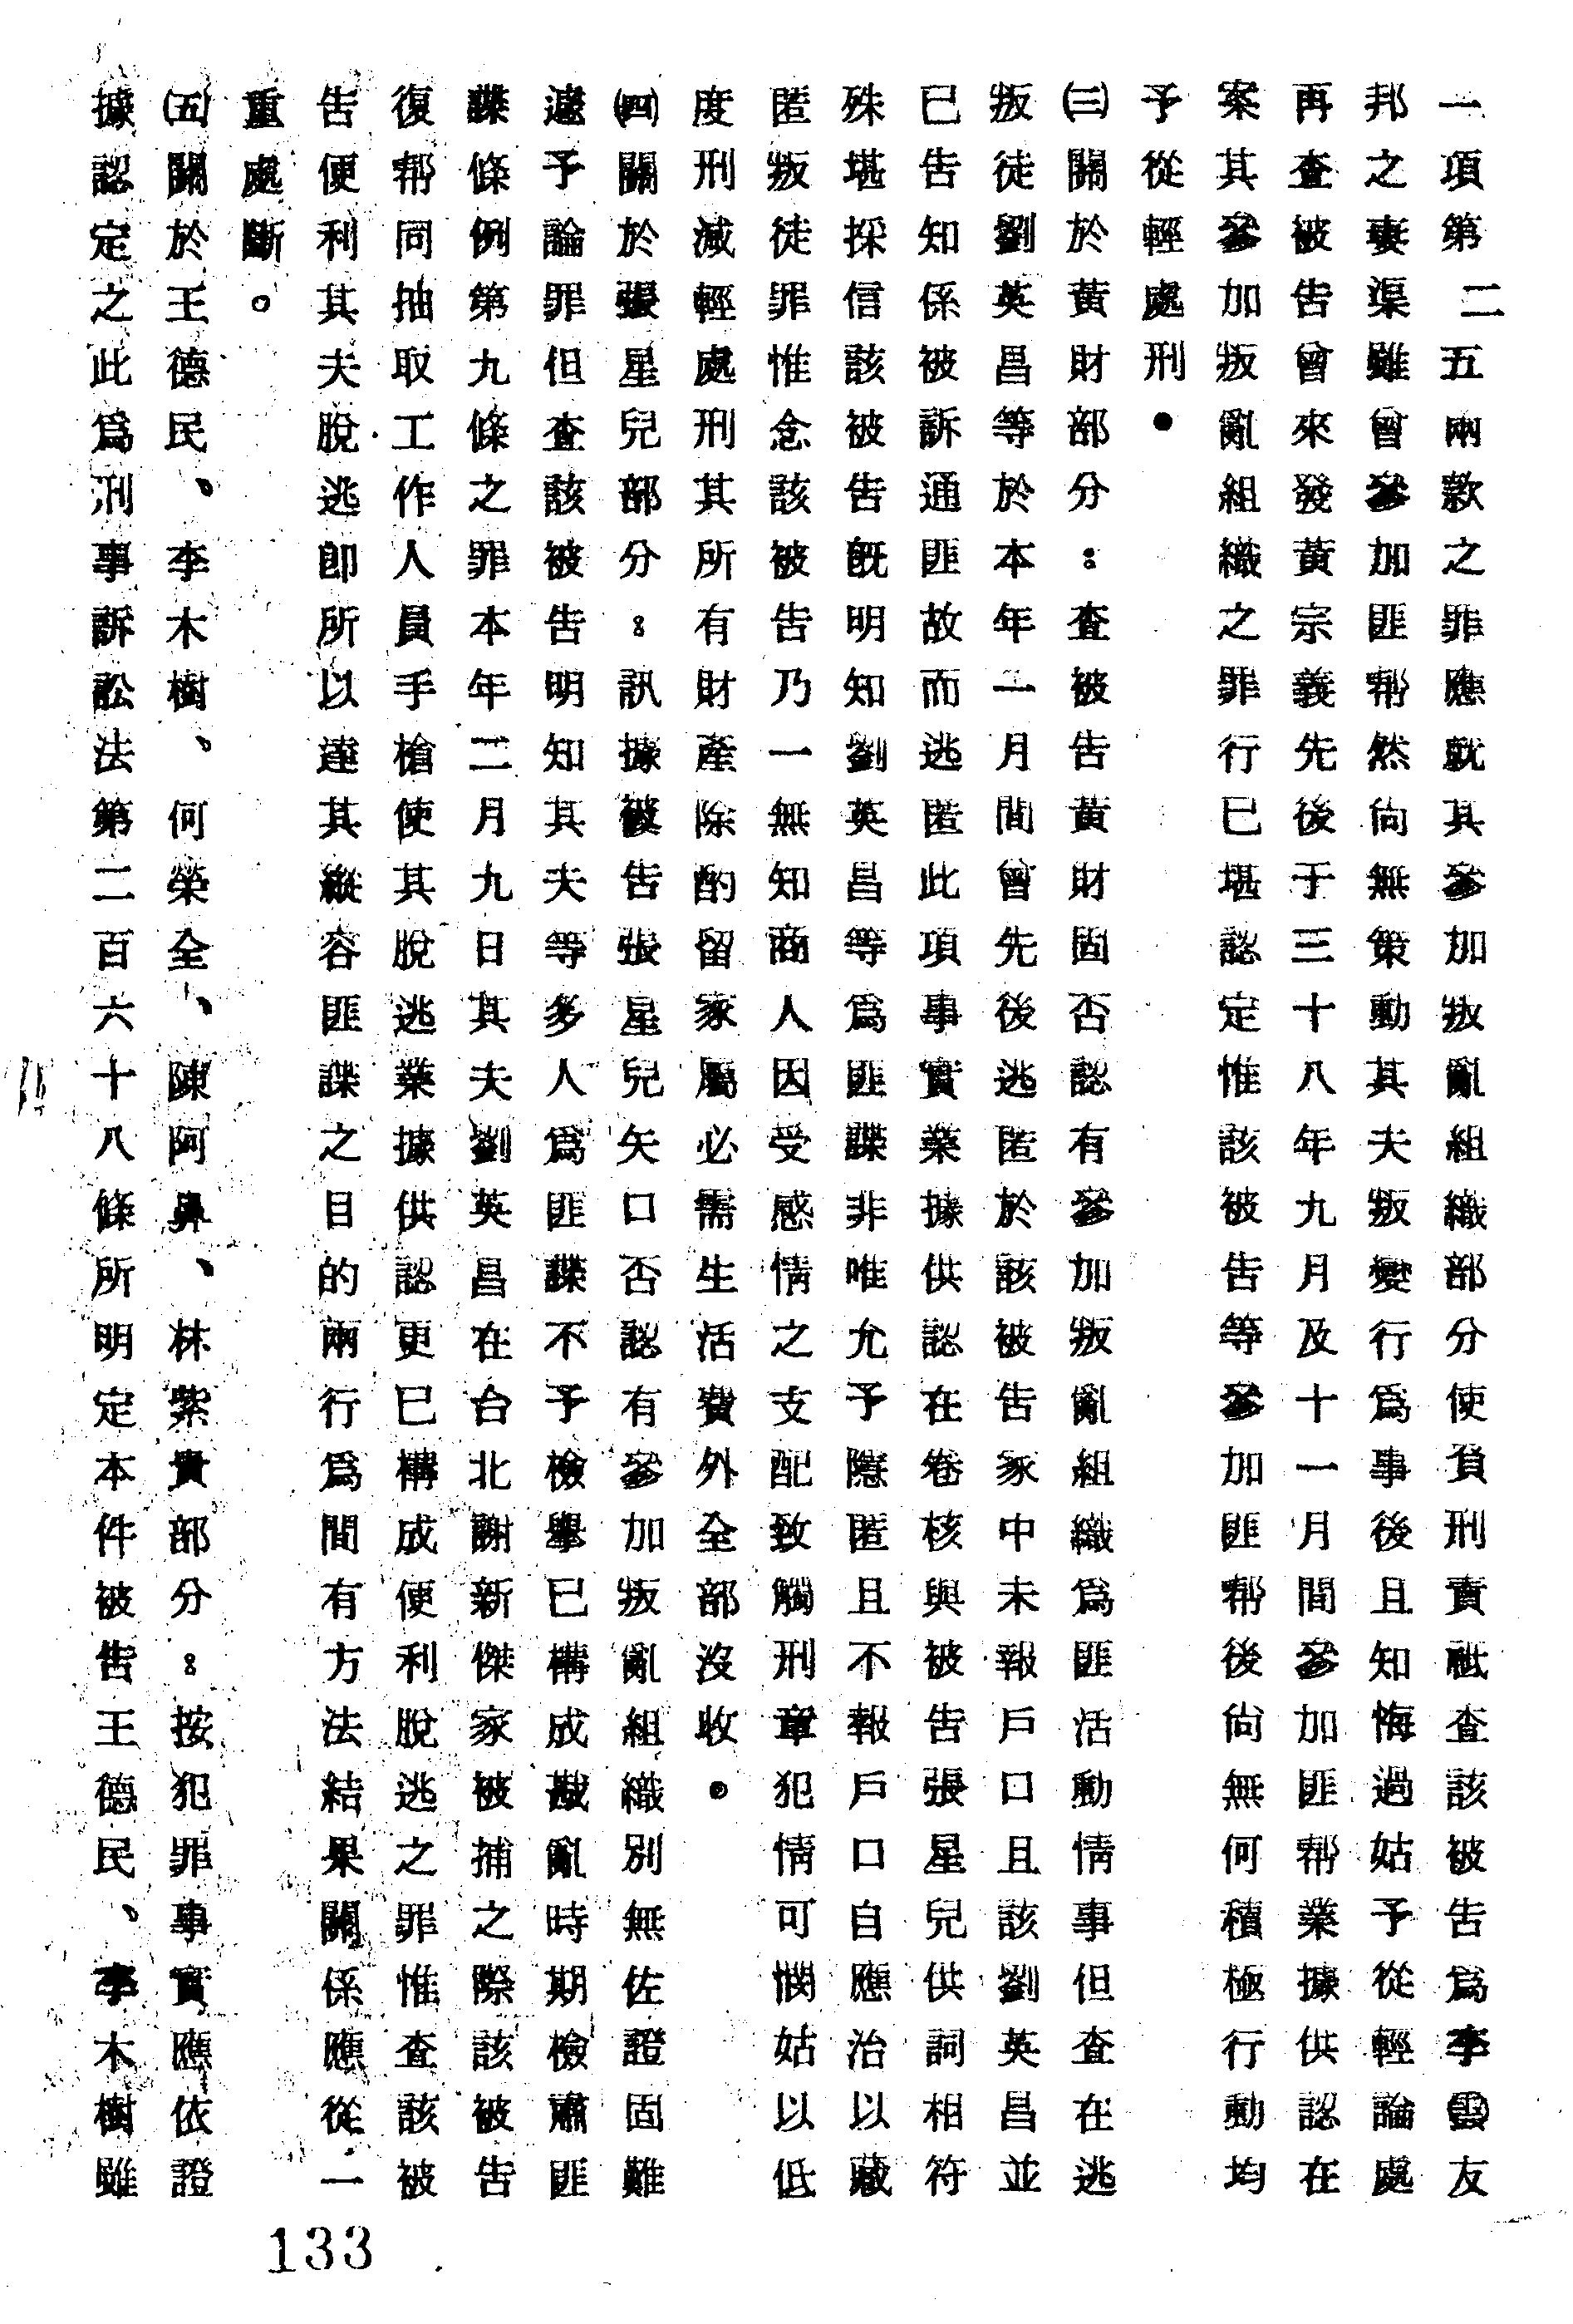 一項第二五兩款之罪應就其參加叛亂組織部分使負刑責祗查該被告為李雲友
邦之妻渠雖曾參加匪幫然尙無策動其夫叛變行為事後且知悔過姑予從輕論處
再查被告曾來發黃宗義先後于三十八年九月及十一月間參加匪幫業據供認在
案其參加叛亂組織之罪行已堪認定惟該被告等參加匪幫後尙無何積極行動均
予從輕處刑●
㈢關於黃財部分：查被告黃財固否認有參加叛亂組織為匪活動情事但查在逃
叛徒劉英昌等於本年一月間曾先後逃匿於該被告家中未報戶口且該劉英昌並
已告知係被訴通匪故而逃匿此項事實業據供認在卷核與被告張星兒供詞相符
殊堪採信該被告既明知劉英昌等為匪諜非唯允予隱匿且不報戶口自應治以藏
匿叛徒罪惟念該被告乃一無知商人因受感情之支配致觸刑章犯情可憫姑以低
度刑減輕處刑其所有財產除酌留家屬必需生活費外全部沒收。
㈣關於張星兒部分：訊據被告張星兒矢口否認有參加叛亂組織別無佐證固難
遽予論罪但查該被告明知其夫等多人為匪諜不予檢舉已構成戡亂時期檢肅匪
諜條例第九條之罪本年二月九日其夫劉英昌在台北謝新傑家被捕之際該被告
復幫同抽取工作人員手槍使其脫逃業據供認更已構成便利脫逃之罪惟查該被
告便利其夫脫逃卽所以達其縱容匪諜之目的兩行為間有方法結果關係應從一
重處斷。
㈤關於王德民、李木樹、何榮全、陳阿鼻、林紫貴部分：按犯罪事實應依證
據認定之此為刑事訴訟法第二百六十八條所明定本件被告王德民、李木樹雖
133